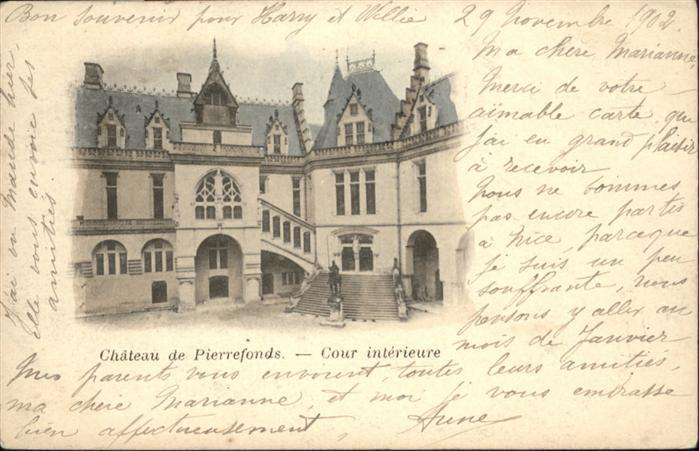 Bon souvenir pour Harry et Willie
29 Novembre 1902.
Ma chère Marianne
Merci de votre
aimable carte, que
j'ai eu grand plaisir
à recevoir
Nous ne sommes
pas encore partis
à Nice, parceque
je suis un peu
souffrante, nous
pensons y aller au
mois de Janvier
Mes parents vous envoient, toutes leurs amitiés,
ma chère Marianne, et moi je vous embrasse
bien affectueusement, Anne
J'ai vu Maude hier,
elle vous envoie ses
amitiés
Château de Pierrefonds. — Cour intérieure